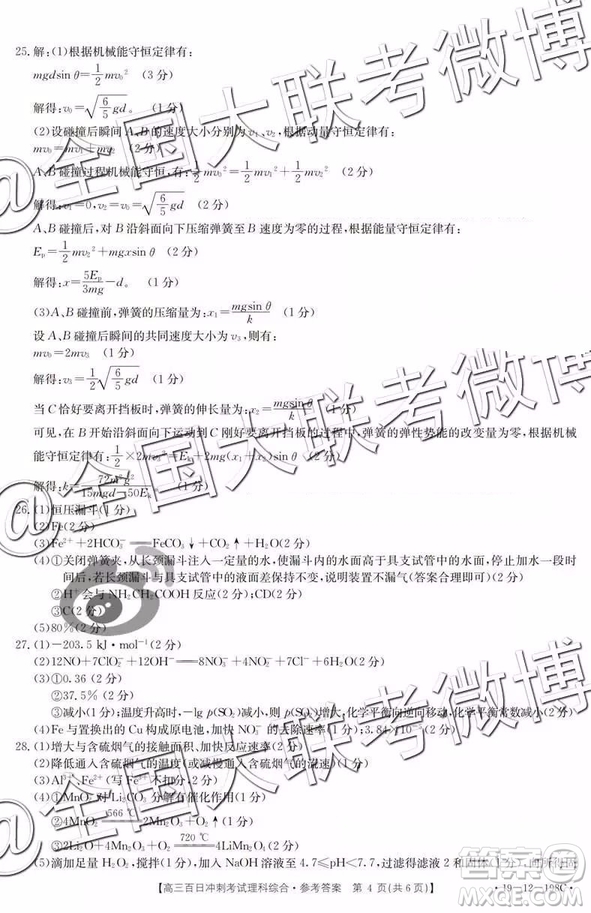 25. 解:(1)根据机械能守恒定律有:
mgdsin θ=1/2 mv₀² (3分)
解得:v₀=√(6/5 gd)。 (1分)
(2)设碰撞后瞬间A、B的速度大小分别为v₁、v₂,根据动量守恒定律有:
mv₀=mv₁+mv₂ (2分)
A、B碰撞过程机械能守恒,有:1/2 mv₀²=1/2 mv₁²+1/2 mv₂² (2分)
解得:v₁=0,v₂=√(6/5 gd) (2分)
A、B碰撞后,对B沿斜面向下压缩弹簧至B速度为零的过程,根据能量守恒定律有:
Eₚ=1/2 mv₂²+mgxsin θ (2分)
解得:x=5Eₚ/3mg−d。 (1分)
(3)A、B碰撞前,弹簧的压缩量为:x₁=mgsin θ/k (1分)
设A、B碰撞后瞬间的共同速度大小为v₃,则有:
mv₀=2mv₃ (1分)
解得:v₃=1/2 √(6/5 gd)
当C恰好要离开挡板时,弹簧的伸长量为:x₂=mgsin θ/k (1分)
可见,在B开始沿斜面向下运动到C刚好要离开挡板的过程中,弹簧的弹性势能的改变量为零。根据机械
能守恒定律有:1/2×2mv₃²=Eₖ+2mg(x₁+x₂)sin θ (2分)
解得:k=72m²g²/(15mgd−50Eₖ) (1分)
26. (1)恒压漏斗(1分)
(2)Fe(2分)
(3)Fe²⁺+2HCO₃⁻══FeCO₃↓+CO₂↑+H₂O(2分)
(4)①关闭弹簧夹,从长颈漏斗注入一定量的水,使漏斗内的水面高于具支试管中的水面,停止加水一段时间
后,若长颈漏斗与具支试管中的液面差保持不变,说明装置不漏气(答案合理即可)(2分)
②H⁺会与NH₂CH₂COOH反应(2分);CD(2分)
③C(2分)
(5)80%(2分)
27. (1)−203.5 kJ·mol⁻¹(2分)
(2)12NO+7ClO₂⁻+12OH⁻══8NO₃⁻+4NO₂⁻+7Cl⁻+6H₂O(2分)
(3)①0.36(2分)
②37.5%(2分)
(4)Fe与置换出的Cu构成原电池,加快NO₃⁻的去除速率(2分);
28. (1)增大与含硫烟气的接触面积,加快反应速率(2分)
(2)降低通入含硫烟气的温度(或减慢通入含硫烟气的流速)(2分)
(3)Al³⁺、Fe³⁺(2分)
(4)①MnO₂对Li₂CO₃分解有催化作用(1分)
②4MnO₂ 566 ℃ 2Mn₂O₃+O₂↑(2分)
③2Li₂O+4Mn₂O₃+O₂ 720 ℃ 4LiMn₂O₄(2分)
(5)滴加足量H₂O₂,搅拌(1分),加入NaOH溶液至4.7≤pH<7.7,过滤得滤液2和固体(1分);
【高三百日冲刺考试理科综合·参考答案 第4页(共6页)】
·19-12-198C·
@全国大联考微博
答案圈